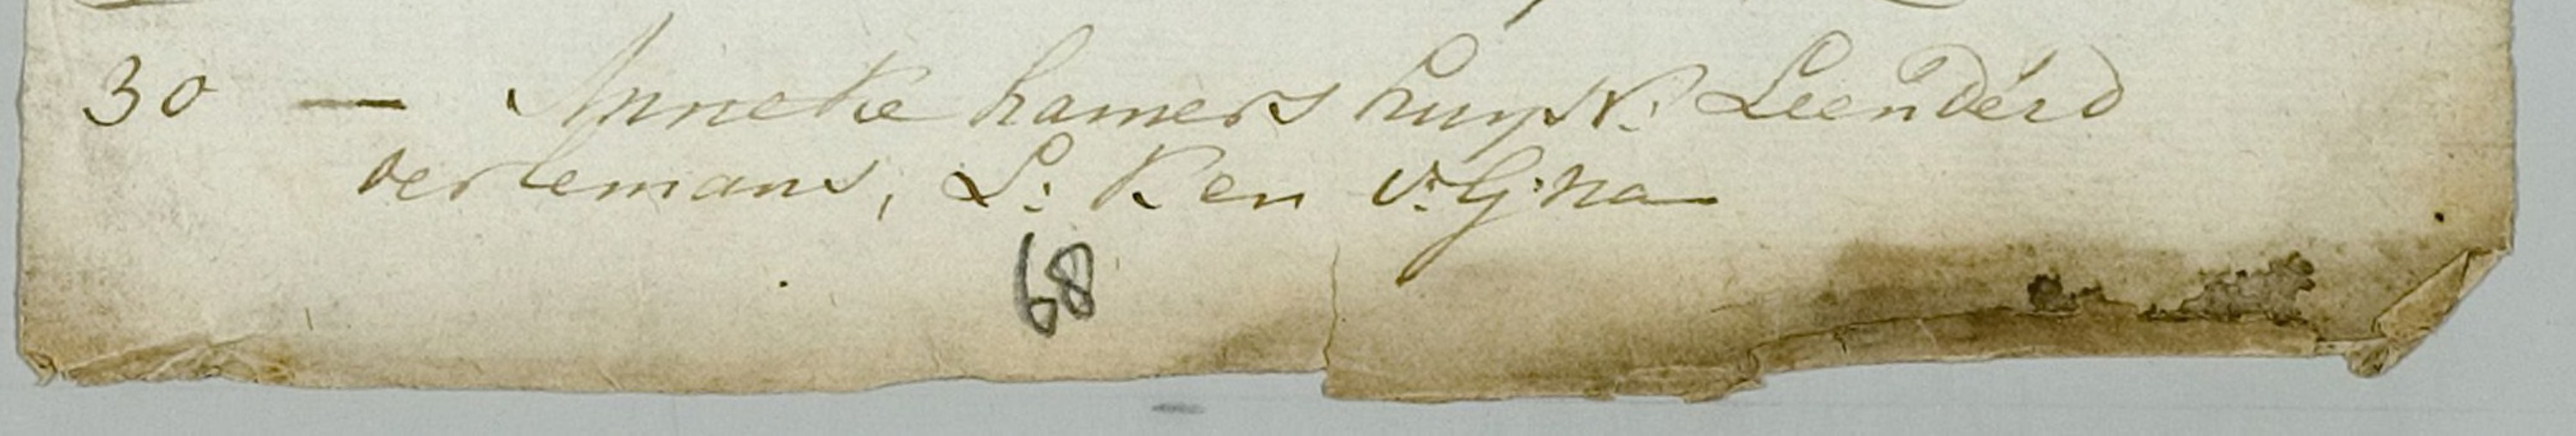 30 — Anneke hamers huysv: Leenderd
oerlemans, L: Ken v: G: na
68